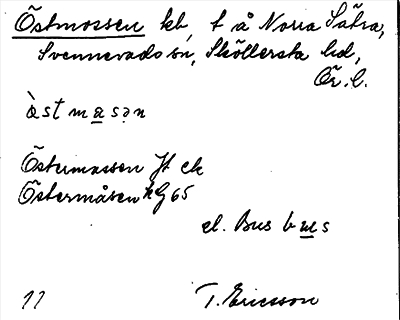 Östmossen kb, t å Norra Sätra,
Svennevads sn, Sköllersta hd,
Ör. l.
òstmasən
Östermossen Jt ek
Östermåsen hg 65
el. Bus bus
11 T. Ericsson